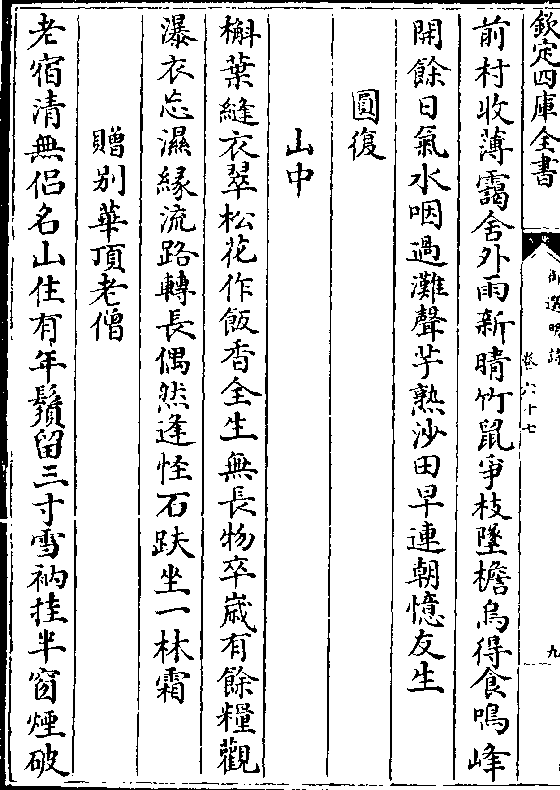 欽定四庫全書
御選明詩
卷六十七
九
前村收薄靄舍外雨新晴竹鼠爭枝墜檐烏得食鳴峰
開餘日氣水咽過灘聲芋熟沙田早連朝憶友生
圓復
山中
槲葉縫衣翠松花作飯香全生無長物卒嵗有餘糧觀
瀑衣忘濕緣流路轉長偶然逢怪石趺坐一林霜
贈别華頂老僧
老宿清無侣名山住有年鬚留三寸雪衲挂半窗煙破